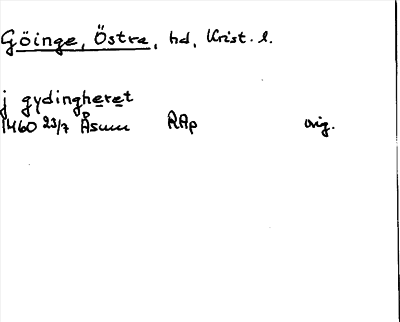 Göinge, Östra, hd, Krist. l.
j gydingheret
1460 23/7 Åsum RAp orig.